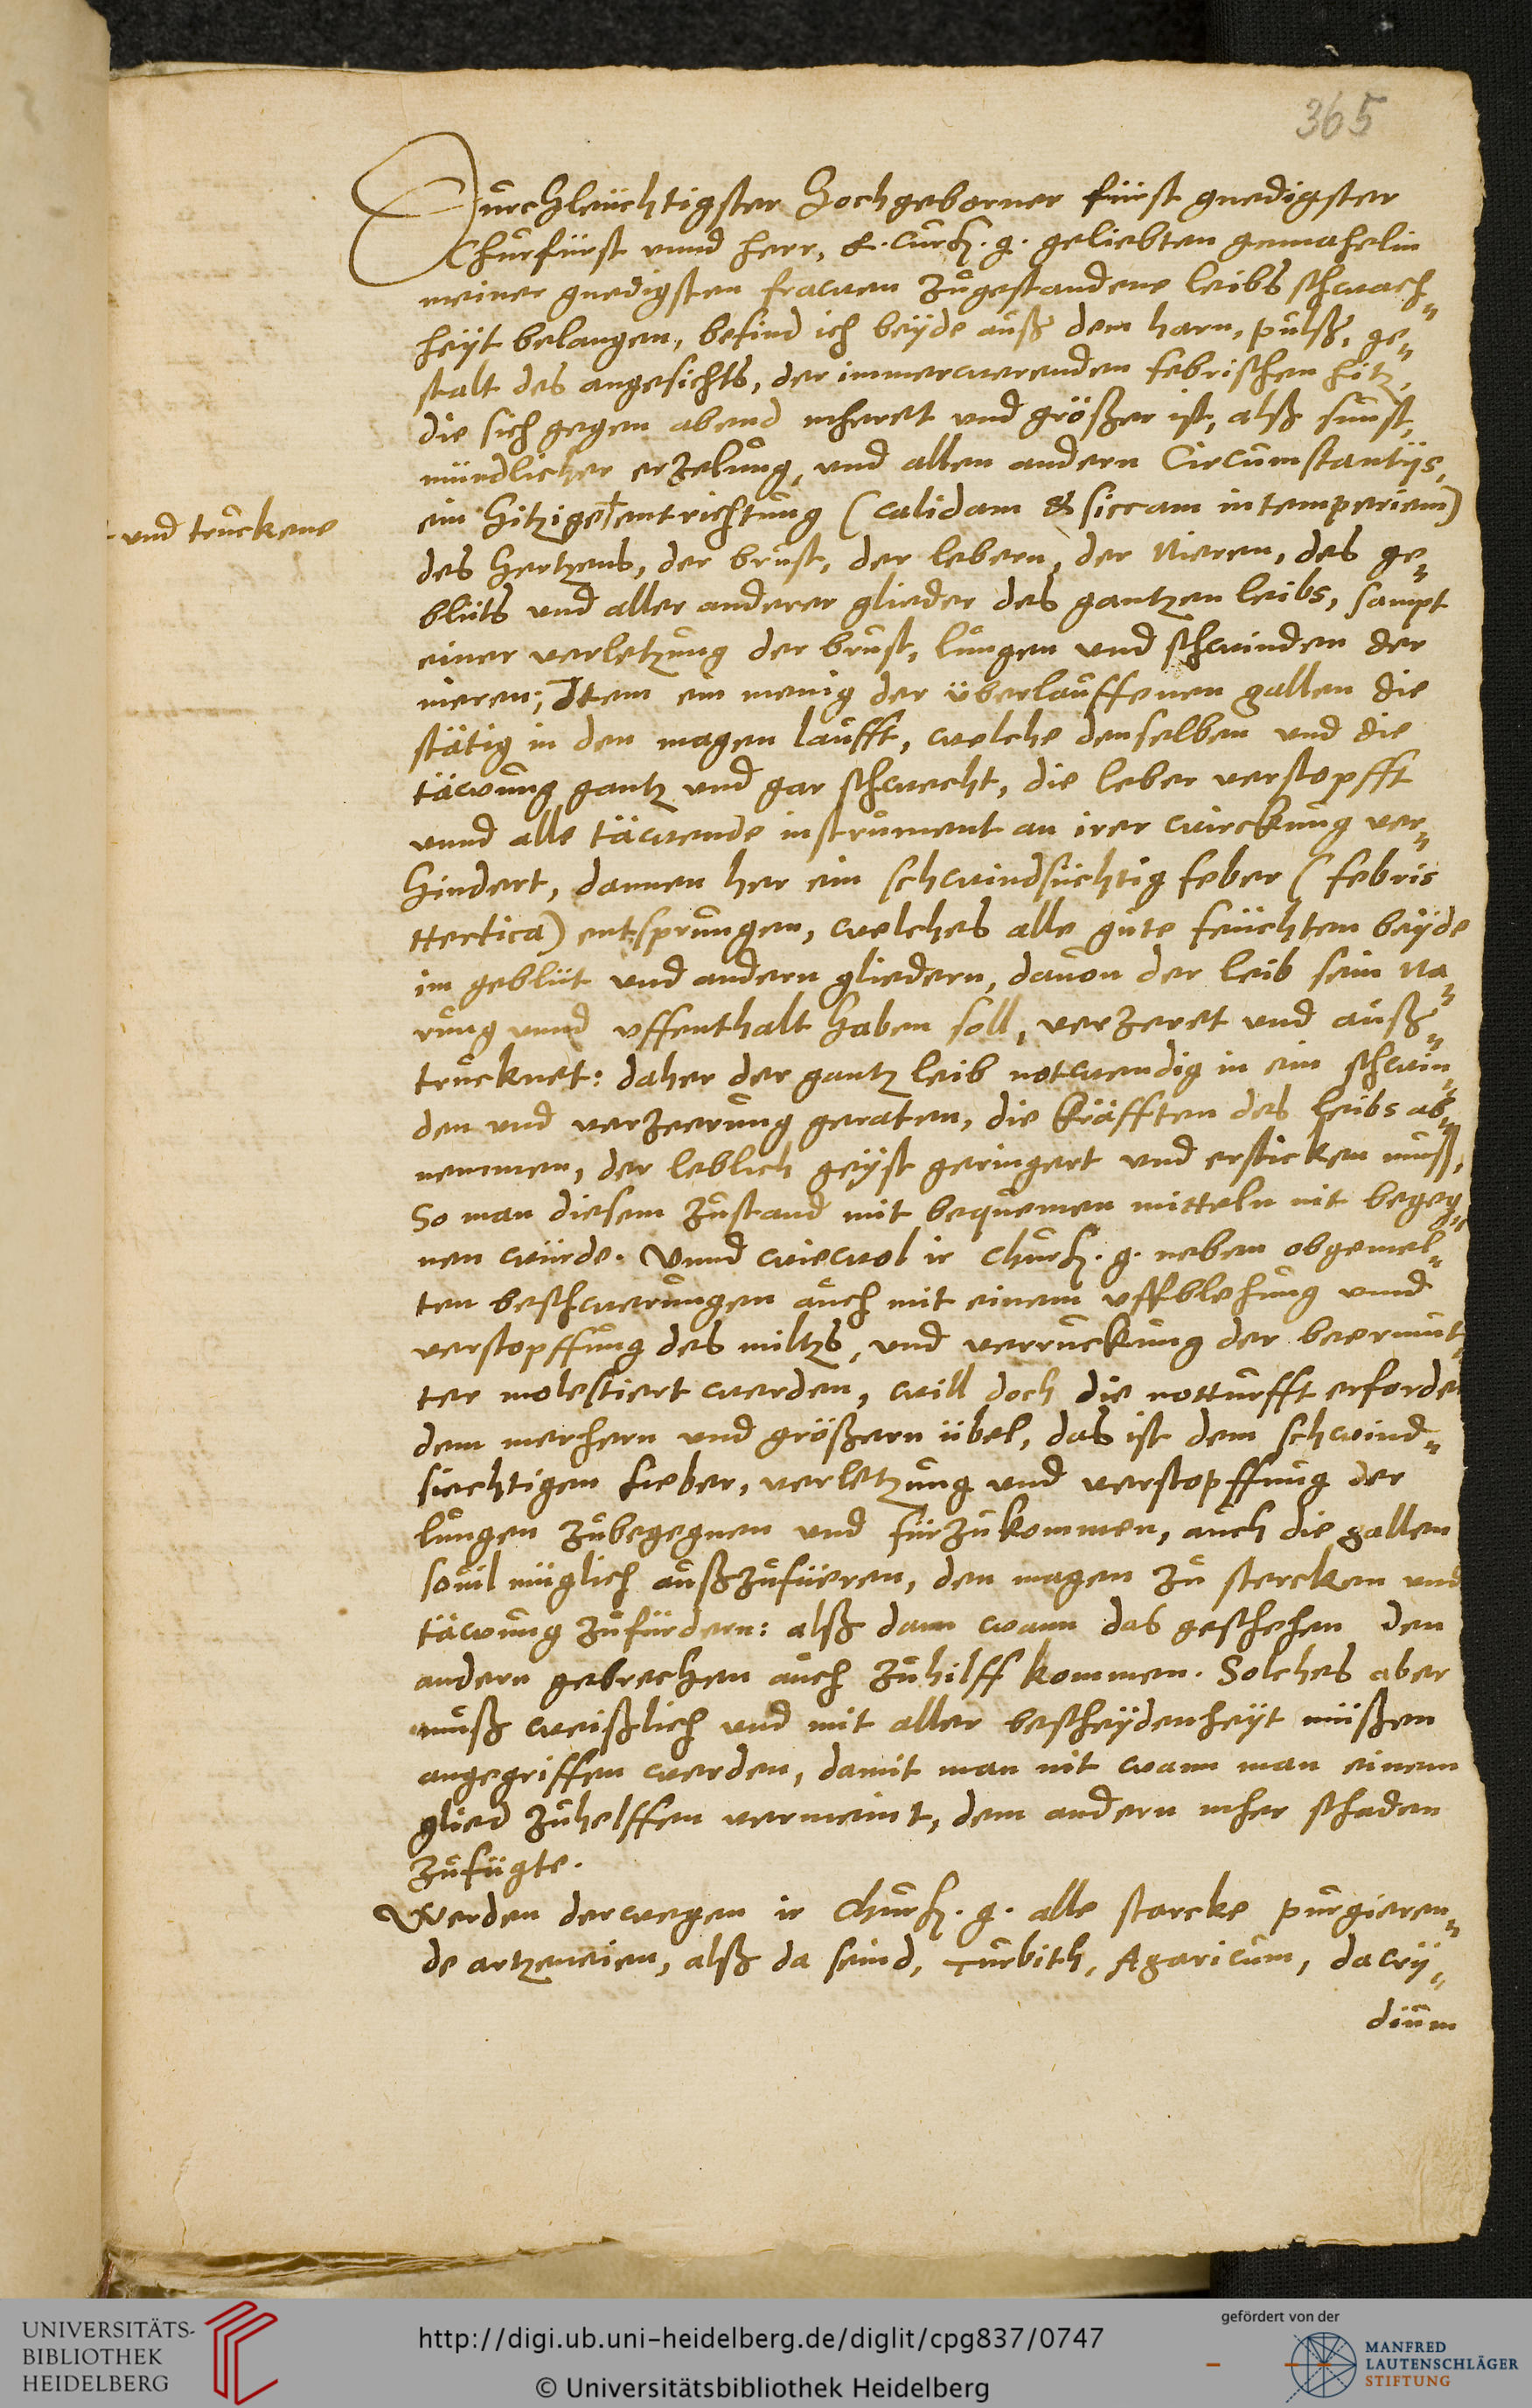 365
Durchleüchtigster Hochgeborner fürst gnedigster
Churfürst vnnd herr, E. Curf. g. geliebten gemahelin
meiner gnedigsten frawen zugestandene leibs schwach„
heyt belangen, befind ich beyde auß dem harn, pulß, ge„
stalt des angesichts, der immerwerenden febrischen hitz,
die sich gegen abend mheret vnd größer ist, alß sunst,
mündlicher erzelung, vnd allen andern Circumstantijs,
ein hitzige entrichtung (calidam & siccam intemperiem)
⊢ vnd truckene
des hertzens, der brust, der lebern, der Nieren, des ge„
blüts vnd aller anderer glieder des gantzen leibs, sampt
einer verletzung der brust, lungen vnd schwinden der
nieren; Item ein menig der überlauffenen gallen die
stätig in den magen laufft, welche denselben vnd die
täwung gantz vnd gar schwecht, die leber verstopfft
vnnd alle täwende instrument an irer wirckung ver„
hindert, dannen her ein schwindsüchtig feber (febris
Hectica) entsprungen, welches alle gute feüchten beyde
im geblüt vnd andern gliedern, dauon der leib sein Na„
rung vnnd vffenthalt haben soll, verzeret vnd auß„
trucknet: daher der gantz leib notwendig in ein schwin„
den vnd verzeerung geraten, die kräfften des leibs ab„
nemmen, der leblich geyst geringert vnd ersticken muß,
So man diesem zustand mit bequemen mitteln nit begeg„
nen würde. Vnnd wiewol ir Churf. g. neben obgemel„
ten beschwerungen auch mit einem vffblehung vnnd
verstopffung des miltzs, vnd verruckung der beermut„
ter molestiert werden, will doch die notturfft erforde
dem merhern vnd größern übel, das ist dem schwind„
siechtigen fieber, verletzung vnd verstopffung der
lungen zubegegnen vnd fürzukommen, auch die gallen
souil müglich außzufüeren, den magen zu stercken vnd
täwung zufürdern: alß dann wann das geschehen den
andern gebrechen auch zuhilff kommen. Solches aber
muß weißlich vnd mit aller bescheydenheyt müßen
angegriffen werden, damit man nit wann man einem
glied zuhelffen vermeint, dem andern mher schaden
zufügte.
Werden derwegen ir Churf. g. alle starcke purgieren„
de artzeneien, alß da seind, Turbith, Agaricum, dacry„
dium
UNIVERSITÄTS-
BIBLIOTHEK
HEIDELBERG
http://digi.ub.uni-heidelberg.de/diglit/cpg837/0747
© Universitätsbibliothek Heidelberg
gefördert von der
MANFRED
LAUTENSCHLÄGER
STIFTUNG